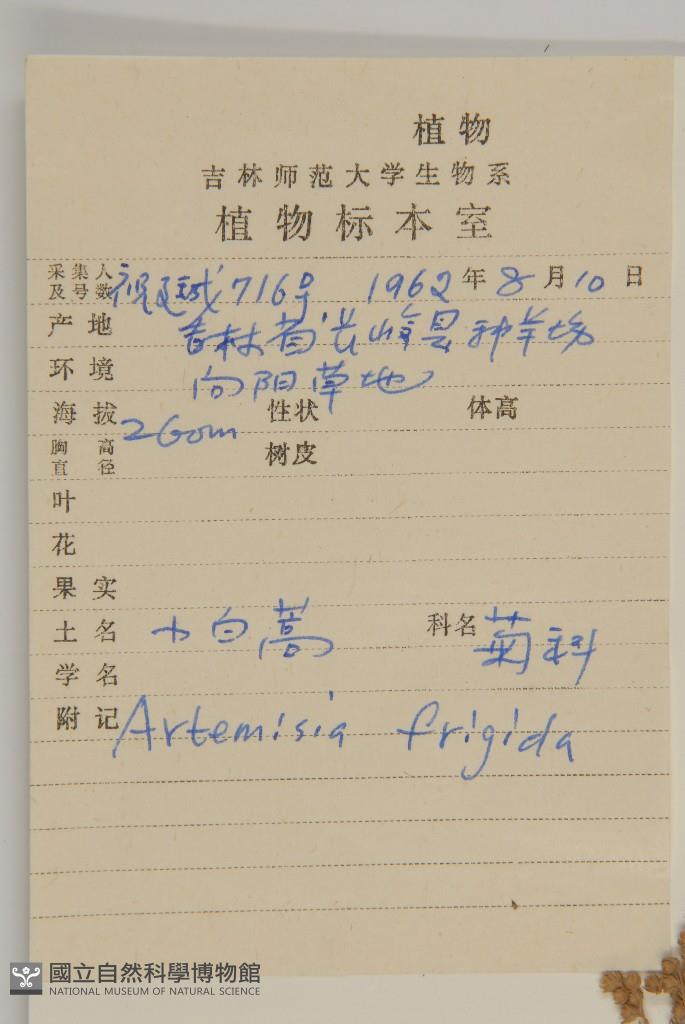 植物
吉林师范大学生物系
植物标本室
采集人及号数 祝廷成 716号 1962年8月10日
产地 吉林省长岭县种羊场
环境 向阳草地
海拔 260m 性状 体高
胸高直径 树皮
叶
花
果实
土名 小白蒿 科名 菊科
学名
附记 Artemisia frigida
國立自然科學博物館
NATIONAL MUSEUM OF NATURAL SCIENCE